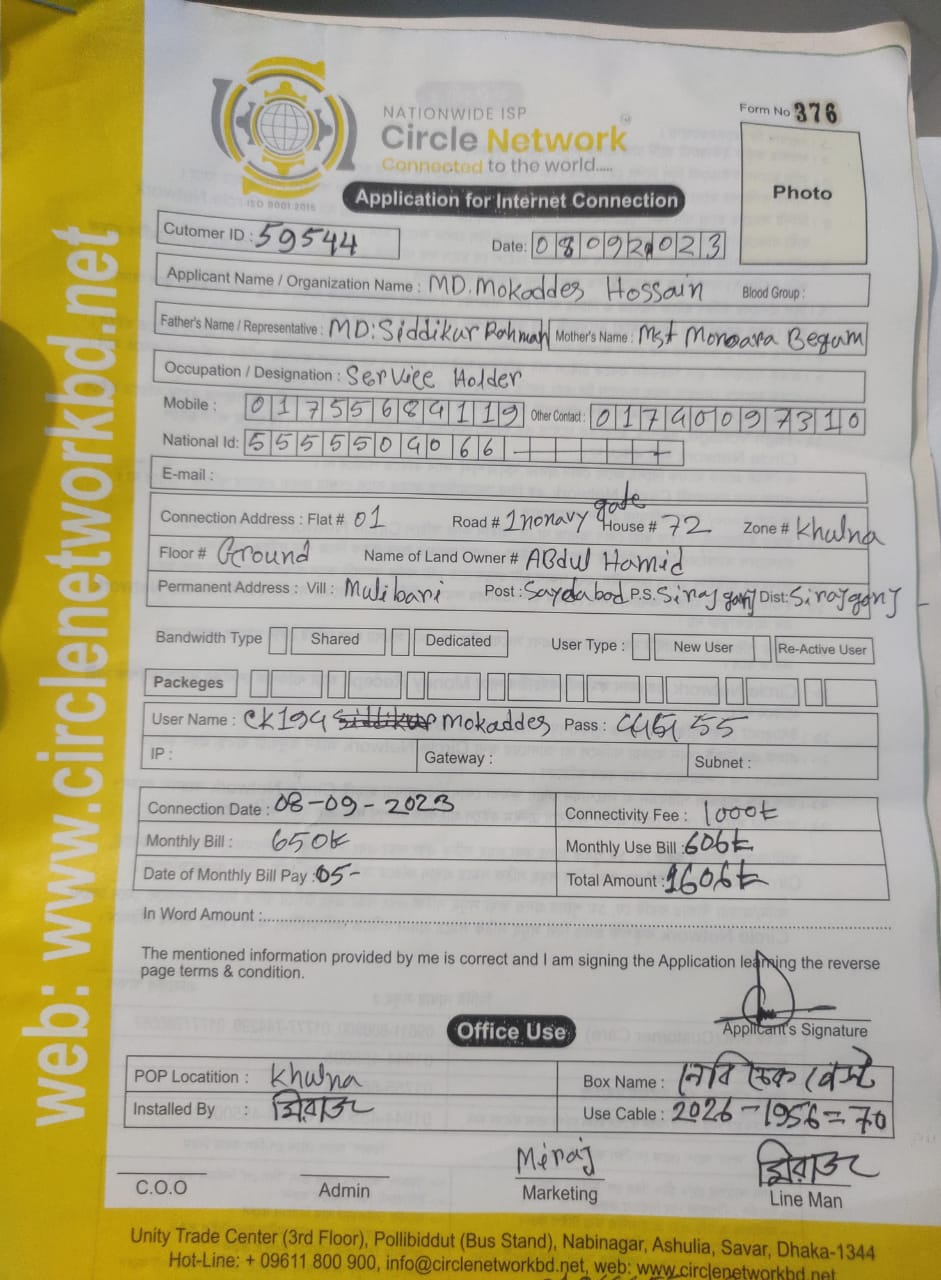 web: www.circlenetworkbd.net
NATIONWIDE ISP
Circle Network
Connected to the world.....
ISO 9001:2015
Form No 376
Photo
Application for Internet Connection
Cutomer ID : 59544
Date: 08092023
Applicant Name / Organization Name : MD. Mokaddes Hossain Blood Group :
Father's Name / Representative : MD: Siddikur Rahman Mother's Name : Mst Monoara Begum
Occupation / Designation : Service Holder
Mobile : 01755684119 Other Contact : 01740097310
National Id: 5555504066
E-mail :
Connection Address : Flat # 01 Road # 1no navy gate House # 72 Zone # Khulna
Floor # Ground Name of Land Owner # ABdul Hamid
Permanent Address : Vill : Mulibari Post : Saydabod P.S. Sirajgonj Dist: Sirajgonj
Bandwidth Type Shared Dedicated User Type : New User Re-Active User
Packeges
User Name : CK194 mokaddes Pass : 55
IP : Gateway : Subnet :
Connection Date : 08-09-2023 Connectivity Fee : 1000tk
Monthly Bill : 650tk Monthly Use Bill : 606tk
Date of Monthly Bill Pay : 05- Total Amount : 1606tk
In Word Amount :
The mentioned information provided by me is correct and I am signing the Application learning the reverse
page terms & condition.
Applicant's Signature
Office Use
POP Locatition : Khulna Box Name :
Installed By : মিরাজ Use Cable : 2026-1956=70
Meraj মিরাজ
C.O.O Admin Marketing Line Man
Unity Trade Center (3rd Floor), Pollibiddut (Bus Stand), Nabinagar, Ashulia, Savar, Dhaka-1344
Hot-Line: + 09611 800 900, info@circlenetworkbd.net, web: www.circlenetworkbd.net